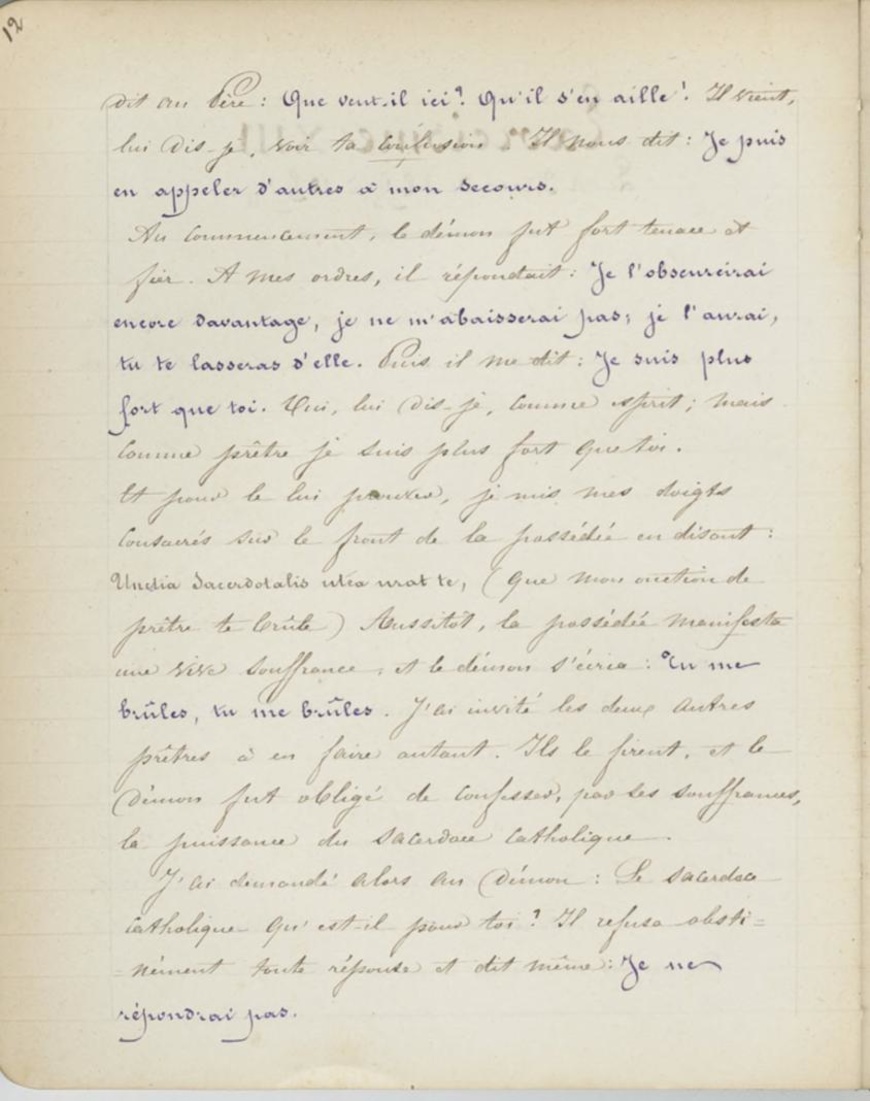 12
dit au Père : Que veut-il ici ? Qu'il s'en aille ! Il vient,
lui dis-je, voir ta confusion. Il nous dit : Je puis
en appeler d'autres à mon secours.
Au commencement, le démon fut fort tenace et
fier. A mes ordres, il répondait : Je l'obscurcirai
encore davantage, je ne m'abaisserai pas; je l'aurai,
tu te lasseras d'elle. Puis il me dit : Je suis plus
fort que toi. Oui, lui dis-je, comme esprit; mais
comme prêtre je suis plus fort que toi.
Et pour le lui prouver, je mis mes doigts
consacrés sur le front de la possédée en disant :
Unctia Sacerdotalis utea urat te, (que mon onction de
prêtre te brûle) Aussitôt, la possédée manifesta
une vive souffrance, et le démon s'écria : Tu me
brûles, tu me brûles. J'ai invité les deux autres
prêtres à en faire autant. Ils le firent, et le
démon fut obligé de confesser, par ses souffrances,
la puissance du sacerdoce catholique.
J'ai demandé alors au démon : Le sacerdoce
catholique qu'est-il pour toi ? Il refusa obsti=
=nément toute réponse et dit même : Je ne
répondrai pas.